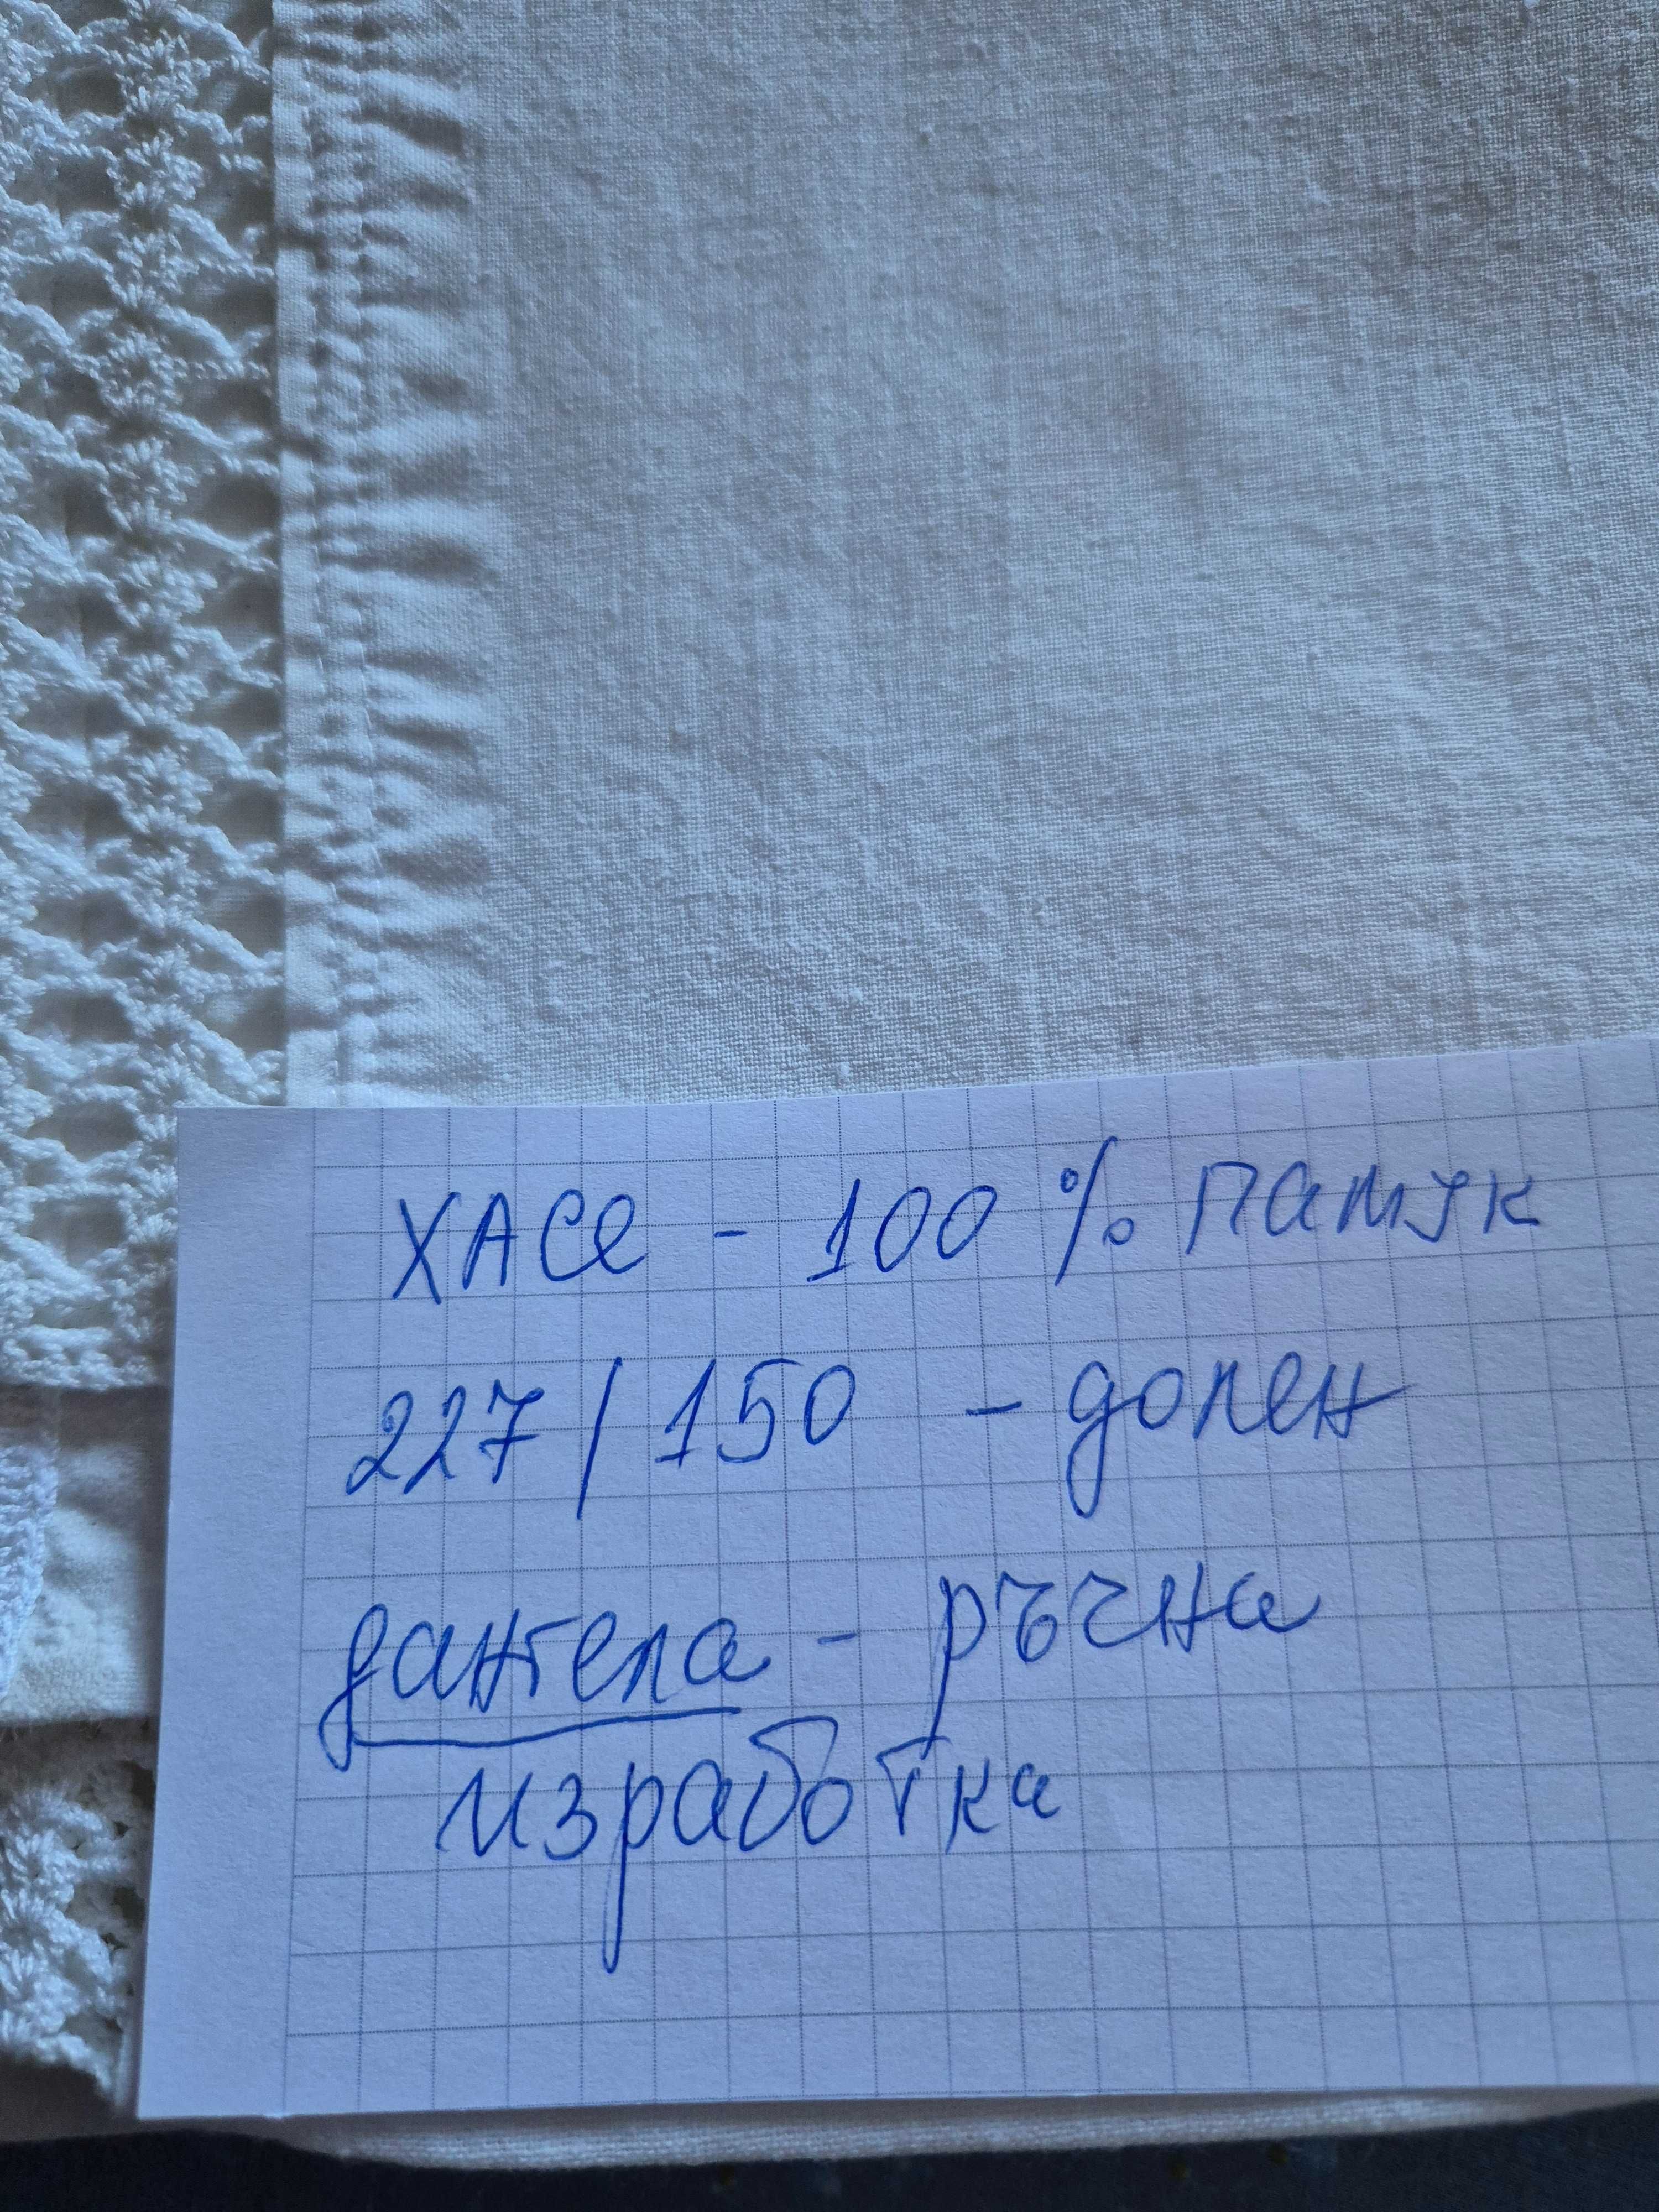 ХАСЕ - 100 % памук
227 / 150 - долен
дантела - ръчна
изработка